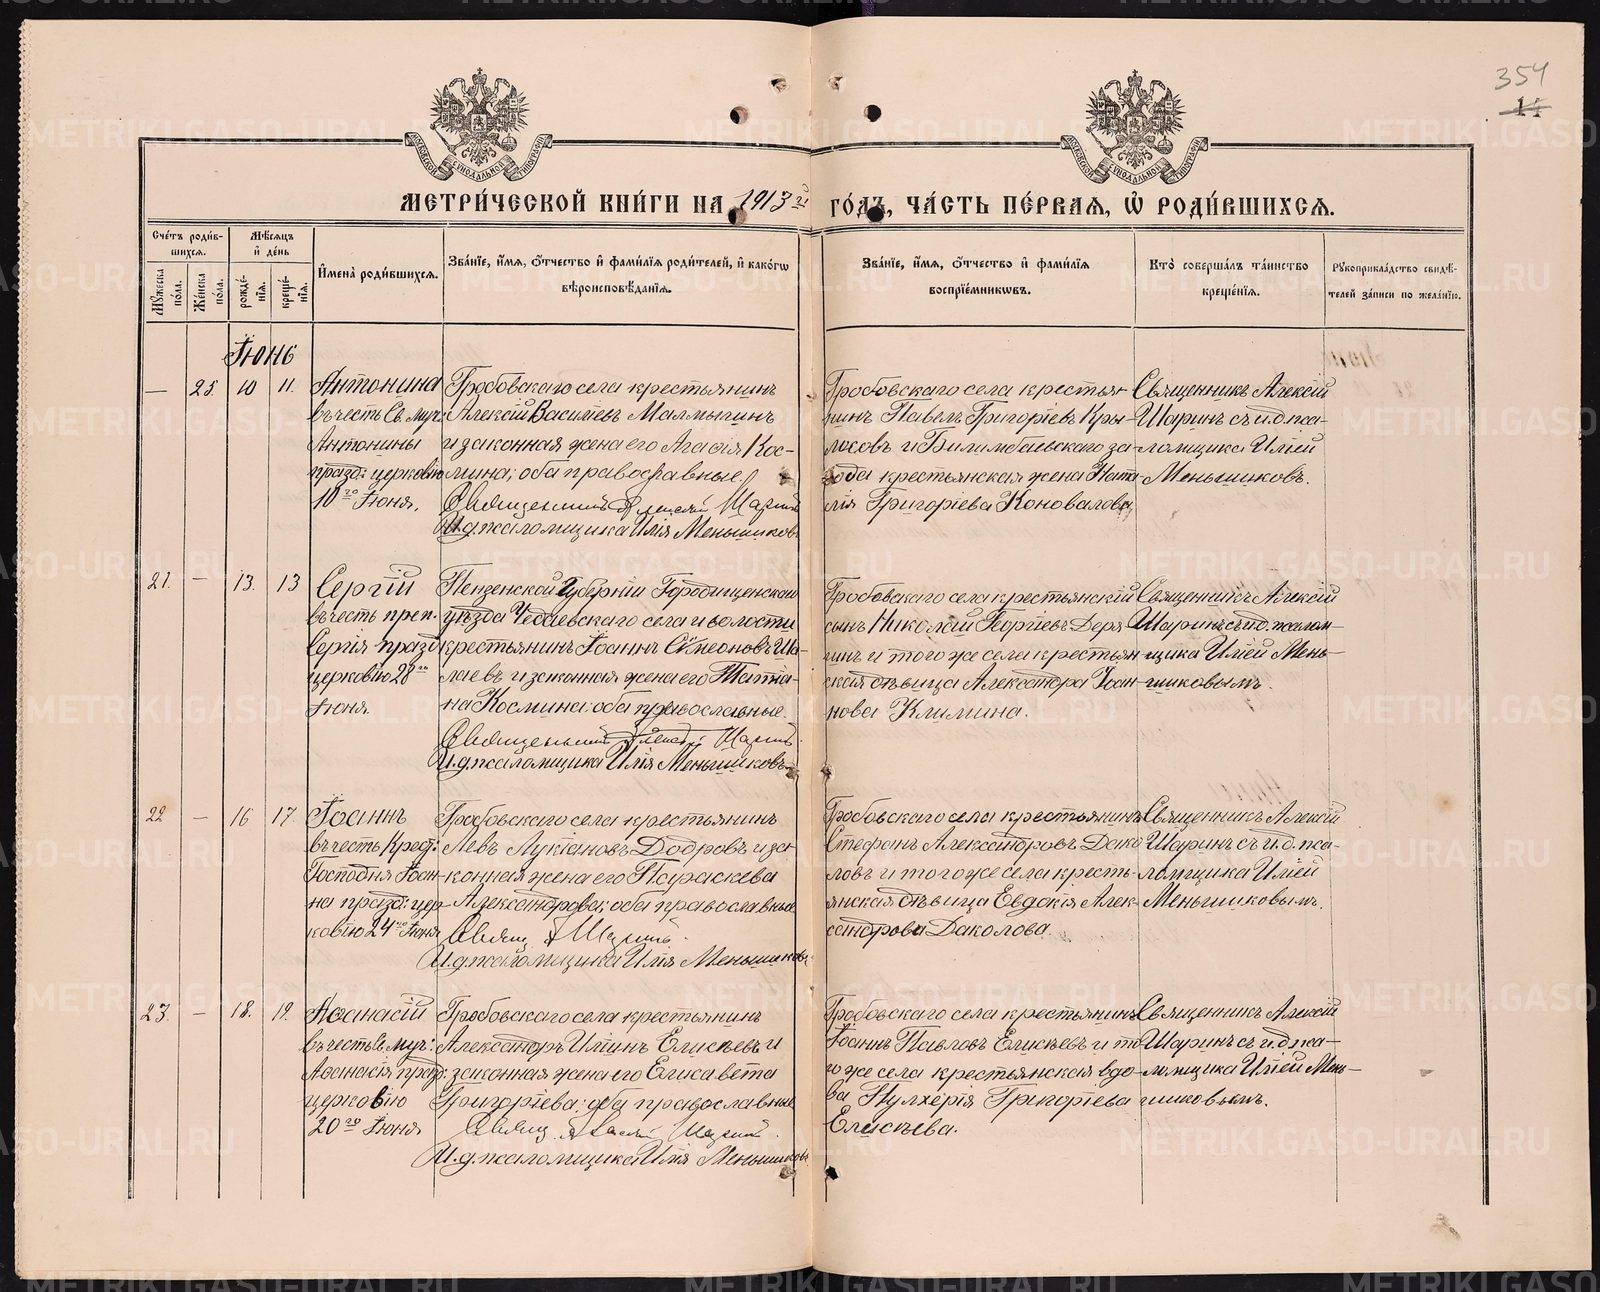 354
14
МЕТРИ́ЧЕСКОЙ КНИ́ГИ НА 1913 й ГО́ДЪ, ЧА́СТЬ ПЕ́РВАЯ, Ѽ РОДИ́ВШИХСѦ.
Сче́тъ роди́в-
шихсѧ.
Мꙋ́жеска по́ла.
Же́нска по́ла.
Мѣ́сѧцъ
и҆ де́нь
рожде́-
нїѧ.
креще́-
нїѧ.
И҆мена̀ роди́вшихсѧ.
Зва́нїе, и҆́мѧ, ѻ҆́тчество и҆ фами́лїѧ роди́телей, и҆ како́гѡ
вѣроисповѣ́данїѧ.
Зва́нїе, и҆́мѧ, ѻ҆́тчество и҆ фами́лїѧ
воспрїе́мникѡвъ.
Кто̀ соверша́лъ та́инство
креще́нїѧ.
Рꙋкоприкла́дство свидѣ́-
телей за́писи по жела́нїю.
Іюнь
— 25. 10 11.
Антонина
въ честь Св. муч:
Антонины
празд: церковію
10го Іюня.
Гробовскаго села крестьянинъ
Алексій Василіевъ Малмыгинъ
и законная жена его Агафія Кос-
мина; оба православные.
Священникъ Алексій Шаринъ
И.д. псаломщика Илія Меньшиковъ
Гробовскаго села крестья-
нинъ Павелъ Григоріевъ Кры-
лосовъ и Билимбаевскаго за-
вода крестьянская жена Ната-
лія Григоріева Коновалова.
Священникъ Алексій
Шаринъ съ и.д. пса-
ломщика Иліей
Меньшиковъ.
21. — 13. 13
Сергій
въ честь преп.
Сергія празд.
церковію 28го
Іюня.
Пензенской Губерніи Городищенскаго
уѣзда Чедаевскаго села и волости
крестьянинъ Іоаннъ Сѵмеоновъ Ша-
лаевъ и законная жена его Татіа-
на Космина: оба православные.
Священникъ Алексій Шаринъ.
И.д. псаломщика Илія Меньшиковъ.
Гробовскаго села крестьянскій
сынъ Николай Георгіевъ Деря-
гинъ и того же села крестьян-
ская дѣвица Александра Іоан-
нова Климина.
Священникъ Алексій
Шаринъ съ и.д. псалом-
щика Иліей Мень-
шиковымъ.
22 — 16 17.
Іоаннъ
въ честь Крест:
Господня Іоан-
на празд: цер-
ковію 24го Іюня
Гробовскаго села крестьянинъ
Левъ Лукіановъ Додровъ и за-
конная жена его Параскева
Александрова: оба православные
Свящ. А Шаринъ.
И.д. псаломщика Илія Меньшиковъ.
Гробовскаго села крестьянинъ
Стефанъ Александровъ Дако-
ловъ и того же села кресть-
янская дѣвица Евдокія Алек-
сандрова Даколова.
Священникъ Алексій
Шаринъ съ и.д. пса-
ломщика Иліей
Меньшиковымъ.
23. — 18. 19.
Аѳанасій
въ честь Св. муч:
Аѳанасія празд:
церковію
20го Іюня
Гробовскаго села крестьянинъ
Александръ Итинъ Елисѣевъ и
законная жена его Елисавета
Григоріева; оба православные
Свящ. Алексій Шаринъ.
И.д. псаломщика Илія Меньшиковъ
Гробовскаго села крестьянинъ
Іоаннъ Павловъ Елисѣевъ и то-
го же села крестьянская вдо-
ва Пулхерія Григоріева
Елисѣева.
Священникъ Алексій
Шаринъ съ и.д. пса-
ломщика Иліей Мень-
шиковымъ.
METRIKI.GASO-URAL.RU